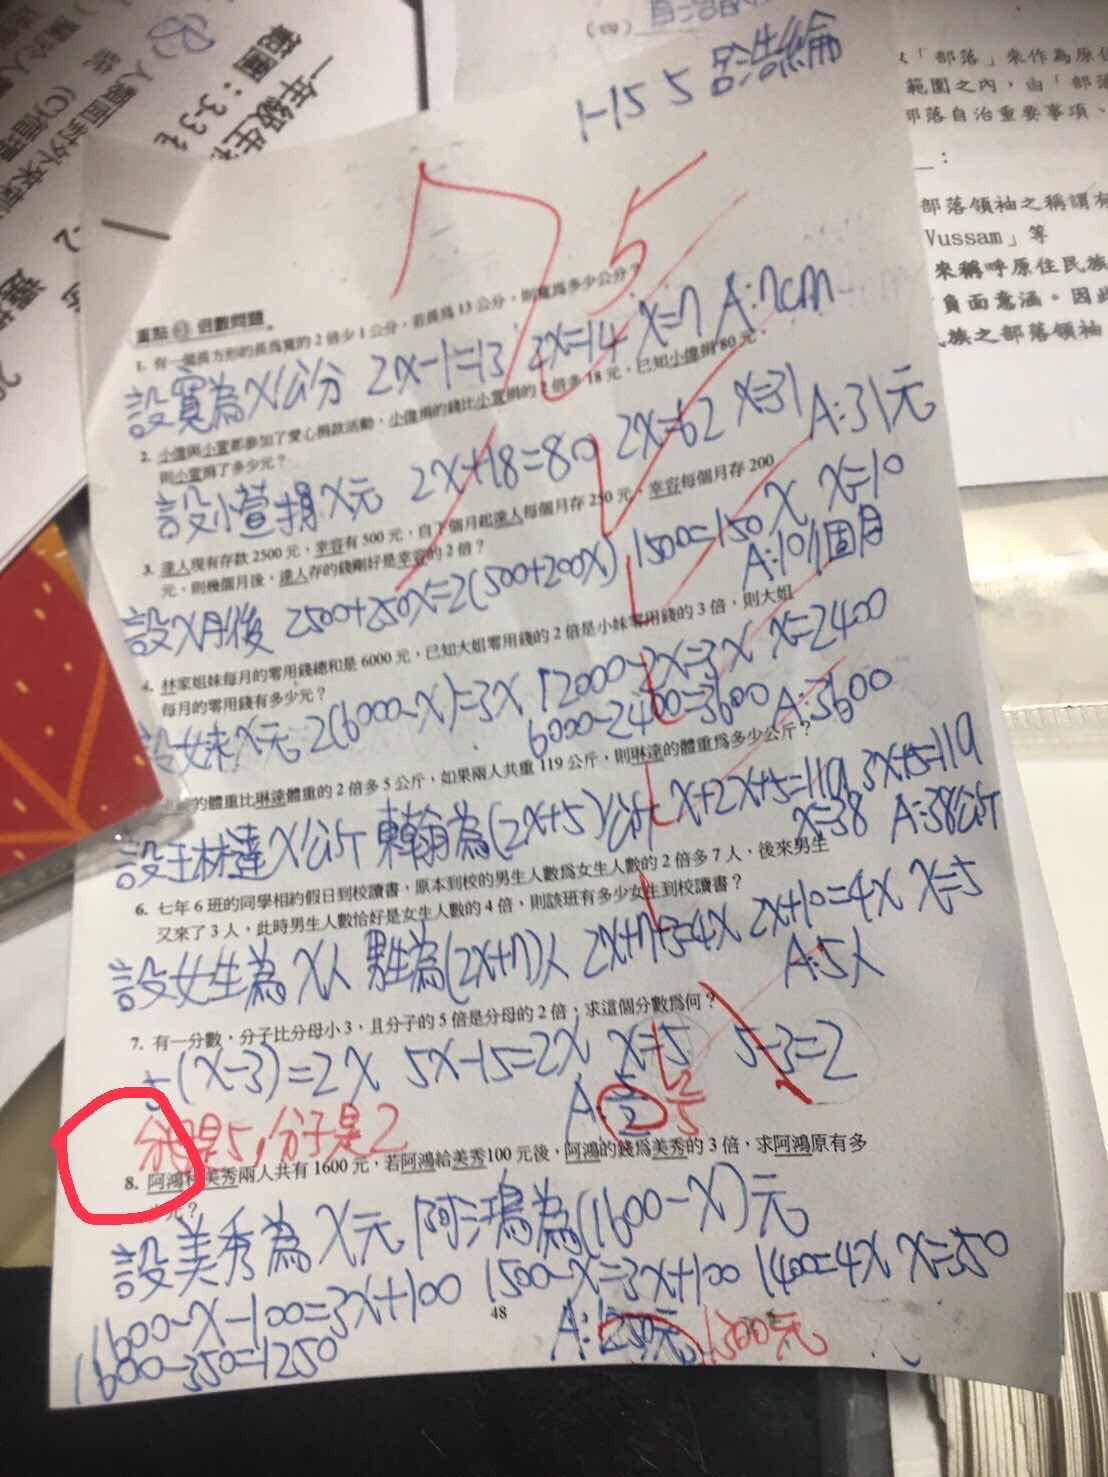 1-15 5 呂浩綸
75
重點 3 倍數問題
1. 有一個長方形的長為寬的 2 倍少 1 公分，若長為 13 公分，則寬為多少公分？
設寬為X公分 2X-1=13 2X=14 X=7 A:7cm
2. 小偉與小萱都參加了愛心捐款活動，小偉捐的錢比小萱捐的 2 倍多 18 元，已知小偉捐 80 元，
則小萱捐了多少元？
設小萱捐X元 2X+18=80 2X=62 X=31 A:31元
3. 達人現有存款 2500 元，幸容有 500 元，自下個月起達人每個月存 250 元，幸容每個月存 200
元，則幾個月後，達人存的錢剛好是幸容的 2 倍？
設X月後 2500+250X=2(500+200X) 1500=150X X=10
A:10個月
4. 林家姐妹每月的零用錢總和是 6000 元，已知大姐零用錢的 2 倍是小妹零用錢的 3 倍，則大姐
每月的零用錢有多少元？
設女未X元 2(6000-X)=3X 12000-2X=3X X=2400
6000-2400=3600 A:3600
的體重比琳達體重的 2 倍多 5 公斤，如果兩人共重 119 公斤，則琳達的體重為多少公斤？
X+2X+5=119 3X+5=119
X=38 A:38公斤
6. 七年 6 班的同學相約假日到校讀書，原本到校的男生人數為女生人數的 2 倍多 7 人，後來男生
又來了 3 人，此時男生人數恰好是女生人數的 4 倍，則該班有多少女生到校讀書？
設女生為X人 男生為(2X+7)人 2X+7+3=4X 2X+10=4X X=5
A:5人
7. 有一分數，分子比分母小 3，且分子的 5 倍是分母的 2 倍，求這個分數為何？
5(X-3)=2X 5X-15=2X X=5 5-3=2
A:5/2 2/5
分母是5，分子是2
8. 阿鴻和美秀兩人共有 1600 元，若阿鴻給美秀100 元後，阿鴻的錢為美秀的 3 倍，求阿鴻原有多
少元？
設美秀為X元 阿鴻為(1600-X)元
1600-X-100=3X+100 1500-X=3X+100 1400=4X X=350
48
1600-350=1250
A:1250元 1300元